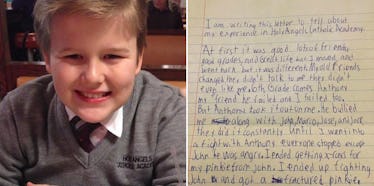 HOLY ANGELS
CATHOLIC ACADEMY
I am writing this letter to tell about
my experience in Holy Angels Catholic Academy.
At first it was good lots of friends,
good grades, and great life but I moved and
went back but it was different. My old friends
changed they didn't talk to me they didn't
even like me. 6th Grade comes, Anthony
my friend he failed and I failed too.
But Anthony took it out on me he bullied
me along with John, Marco, Jose, and Jack
they did it constantly until I went into
a fight with Anthony everyone stopped except
John he was angry. I ended getting x-rays for
my pinkie from John. I ended up fighting
John and got a fractured pinkie.